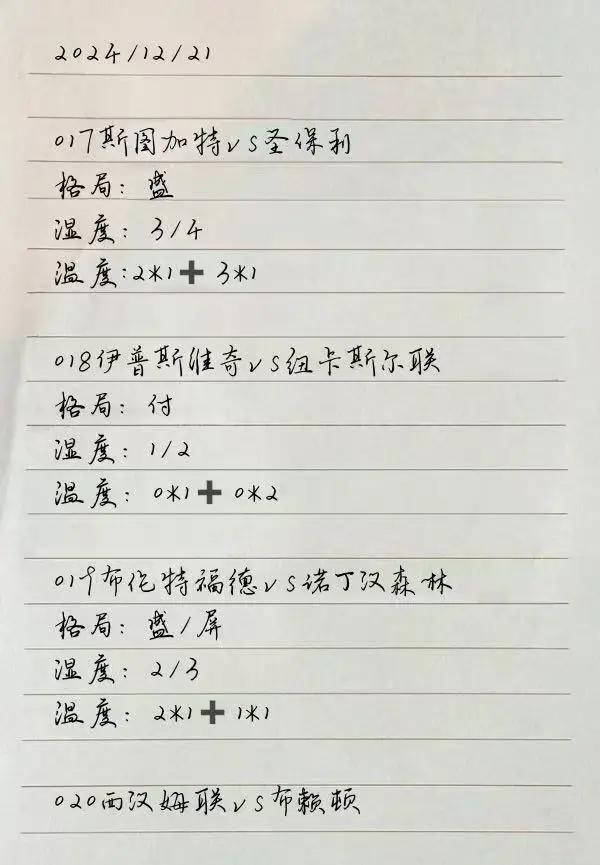 2024/12/21
017斯图加特vs圣保利
格局：盛
湿度：3/4
温度：2*1➕3*1
018伊普斯维奇vs纽卡斯尔联
格局：付
湿度：1/2
温度：0*1➕0*2
019布伦特福德vs诺丁汉森林
格局：盛/屏
湿度：2/3
温度：2*1➕1*1
020西汉姆联vs布赖顿